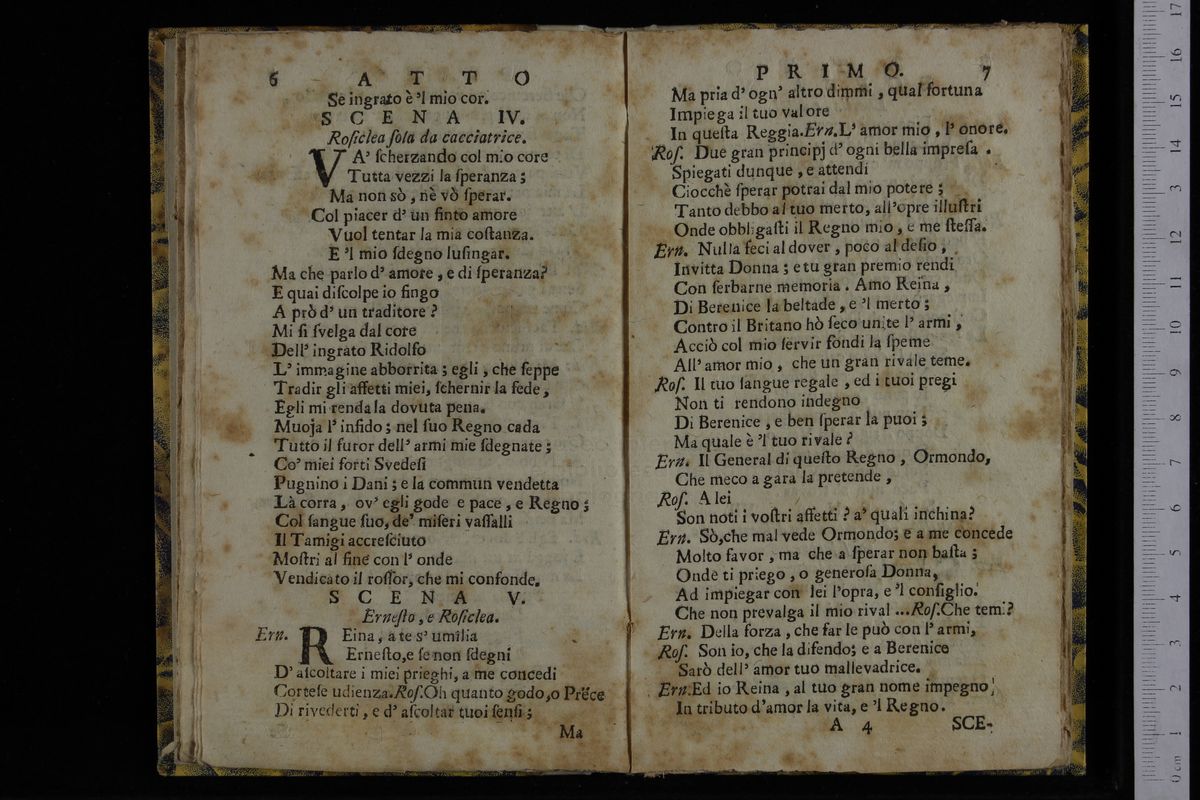 6 ATTO
Se ingrato è 'l mio cor.
SCENA IV.
Roſiclea ſola da cacciatrice.
VA' ſcherzando col mio core
Tutta vezzi la ſperanza;
Ma non sò, nè vò ſperar.
Col piacer d' un finto amore
Vuol tentar la mia coſtanza.
E 'l mio ſdegno luſingar.
Ma che parlo d' amore, e di ſperanza?
E quai diſcolpe io fingo
A prò d' un traditore?
Mi ſi ſvelga dal core
Dell' ingrato Ridolfo
L' immagine abborrita; egli, che ſeppe
Tradir gli affetti miei, ſchernir la fede,
Egli mi renda la dovuta pena.
Muoja l' infido; nel ſuo Regno cada
Tutto il furor dell' armi mie ſdegnate;
Co' miei forti Svedeſi
Pugnino i Dani; e la commun vendetta
Là corra, ov' egli gode e pace, e Regno;
Col ſangue ſuo, de' miſeri vaſſalli
Il Tamigi accreſciuto
Moſtri al fine con l' onde
Vendicato il roſſor, che mi confonde.
SCENA V.
Erneſto, e Roſiclea.
Ern. REina, a te s' umilia
Erneſto, e ſe non ſdegni
D' aſcoltare i miei prieghi, a me concedi
Corteſe udienza. Roſ. Oh quanto godo, o Prēce
Di rivederti, e d' aſcoltar tuoi ſenſi;
Ma
PRIMO. 7
Ma pria d' ogn' altro dimmi, qual fortuna
Impiega il tuo valore
In queſta Reggia. Ern. L' amor mio, l' onore.
Roſ. Due gran principj d' ogni bella impreſa.
Spiegati dunque, e attendi
Ciocchè ſperar potrai dal mio potere;
Tanto debbo al tuo merto, all' opre illuſtri
Onde obbligaſti il Regno mio, e me ſteſſa.
Ern. Nulla feci al dover, poco al deſio,
Invitta Donna; e tu gran premio rendi
Con ſerbarne memoria. Amo Reina,
Di Berenice la beltade, e 'l merto;
Contro il Britano hò ſeco unite l' armi,
Acciò col mio ſervir fondi la ſpeme
All' amor mio, che un gran rivale teme.
Roſ. Il tuo ſangue regale, ed i tuoi pregi
Non ti rendono indegno
Di Berenice, e ben ſperar la puoi;
Ma quale è 'l tuo rivale?
Ern. Il General di queſto Regno, Ormondo,
Che meco a gara la pretende,
Roſ. A lei
Son noti i voſtri affetti? a' quali inchina?
Ern. Sò, che mal vede Ormondo; e a me concede
Molto favor, ma che a ſperar non baſta;
Onde ti priego, o generoſa Donna,
Ad impiegar con lei l'opra, e 'l conſiglio.
Che non prevalga il mio rival ... Roſ. Che temi?
Ern. Della forza, che far le può con l' armi,
Roſ. Son io, che la difendo; e a Berenice
Sarò dell' amor tuo mallevadrice.
Ern. Ed io Reina, al tuo gran nome impegno
In tributo d'amor la vita, e 'l Regno.
A 4 SCE-